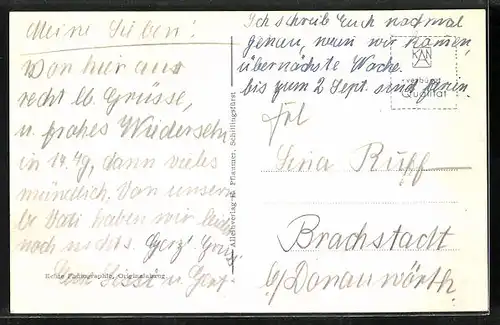 Meine Lieben!
Von hier aus
recht lb. Grüsse,
u. frohes Wiedersehn
in 14 Tg, dann vieles
mündlich. Von unserm
lb Vati haben wir leider
noch nichts. Herzl Grüße
Sissi u. Gert
Echte Photographie, Originalabzug
Alleinverlag Pflaumer, Schillingsfürst
Ich schreib Euch nochmal
genau, wann wir kommen,
übernächste Woche.
bis zum 2 Sept. sind Ferien.
KAN
verbürgt
Qualität
Frl
Lina Ruff
Brachstadt
b/Donauwörth.